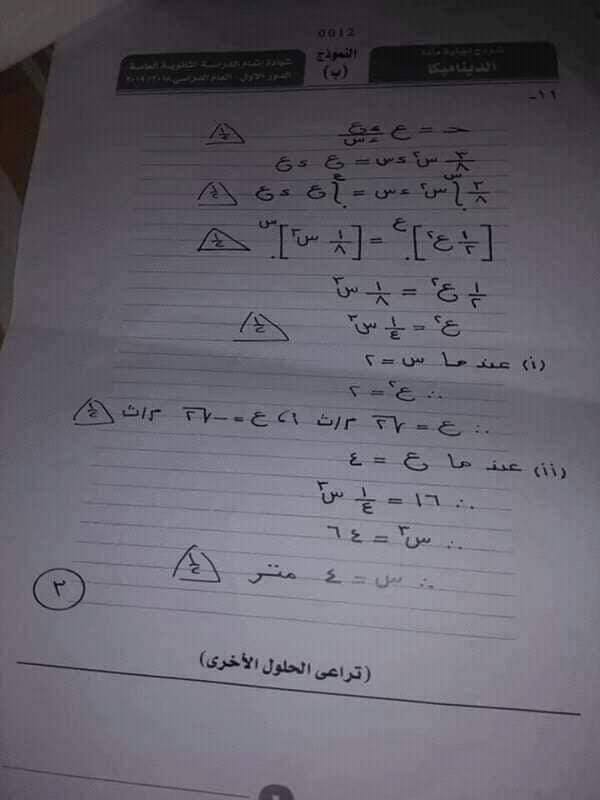 0012
نموذج إجابة مادة
الديناميكا
النموذج
(ب)
شهادة إتمام الدراسة الثانوية العامة
الدور الأول - العام الدراسي ٢٠١٩/٢٠١٨
١١-
حـ = ع ءع/ءس ١/٢
٣/٨ س٢ ءس = ع ءع
٣/٨ ∫ س٢ ءس = ∫ ع ءع ١/٢
[١/٢ ع٢] = [١/٨ س٣] ١/٢
١/٢ ع٢ = ١/٨ س٣
ع٢ = ١/٤ س٣ ١/٢
(i) عند ما س = ٢
∴ ع٢ = ٢
∴ ع = √٢ م/ث أ، ع = -√٢ م/ث ١/٢
(ii) عند ما ع = ٤
∴ ١٦ = ١/٤ س٣
∴ س٣ = ٦٤
∴ س = ٤ متر ١/٢
٢
(تراعى الحلول الأخرى)